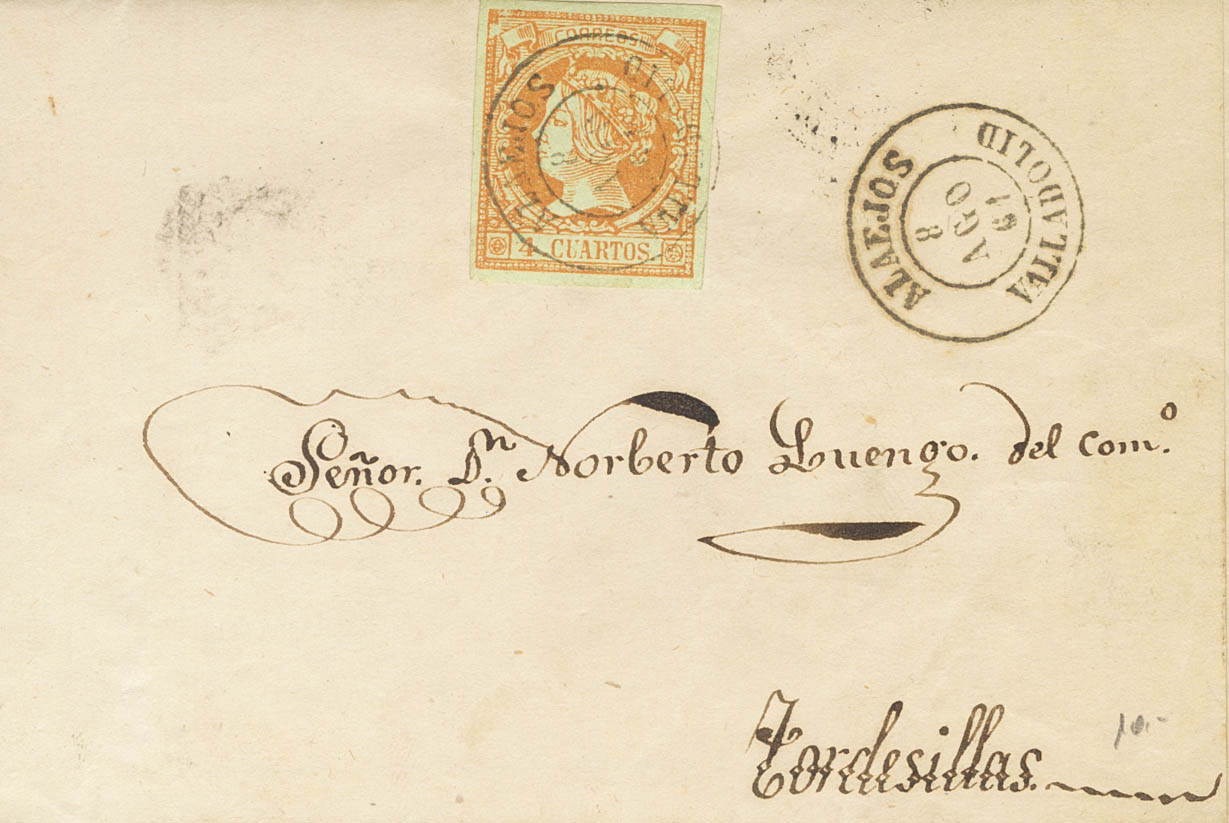 CORREOS
4 CUARTOS.
ALAEJOS
VALLADOLID
8
AGO
61
Señor. Dn. Norberto Luengo. del Com.º
Tordesillas.